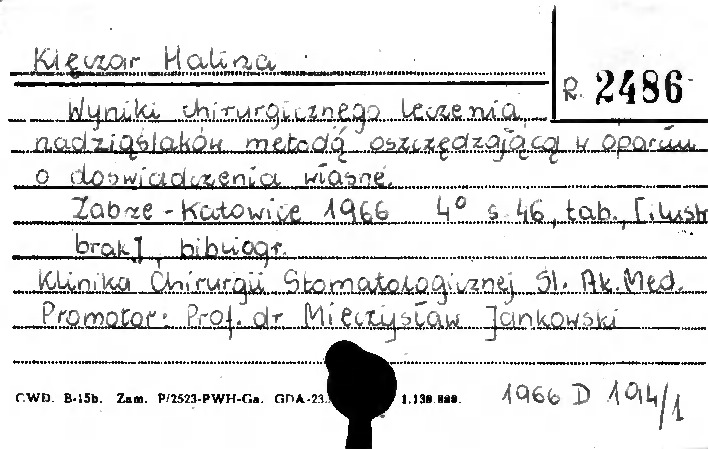 Kleczar Halina
R. 2486
Wyniki chirurgicznego leczenia
nadziąślaków metodą oszczędzającą w oparciu
o doświadczenia własne.
Zabrze - Katowice 1966 4° s. 46, tab., [ilustr
brak], bibliogr.
Klinika Chirurgii Stomatologicznej Śl. Ak. Med.
Promotor: Prof. dr Mieczysław Jankowski
CWD. B-15b. Zam. P/2523-PWH-Ga. GDA-23.
1966 D 194/1